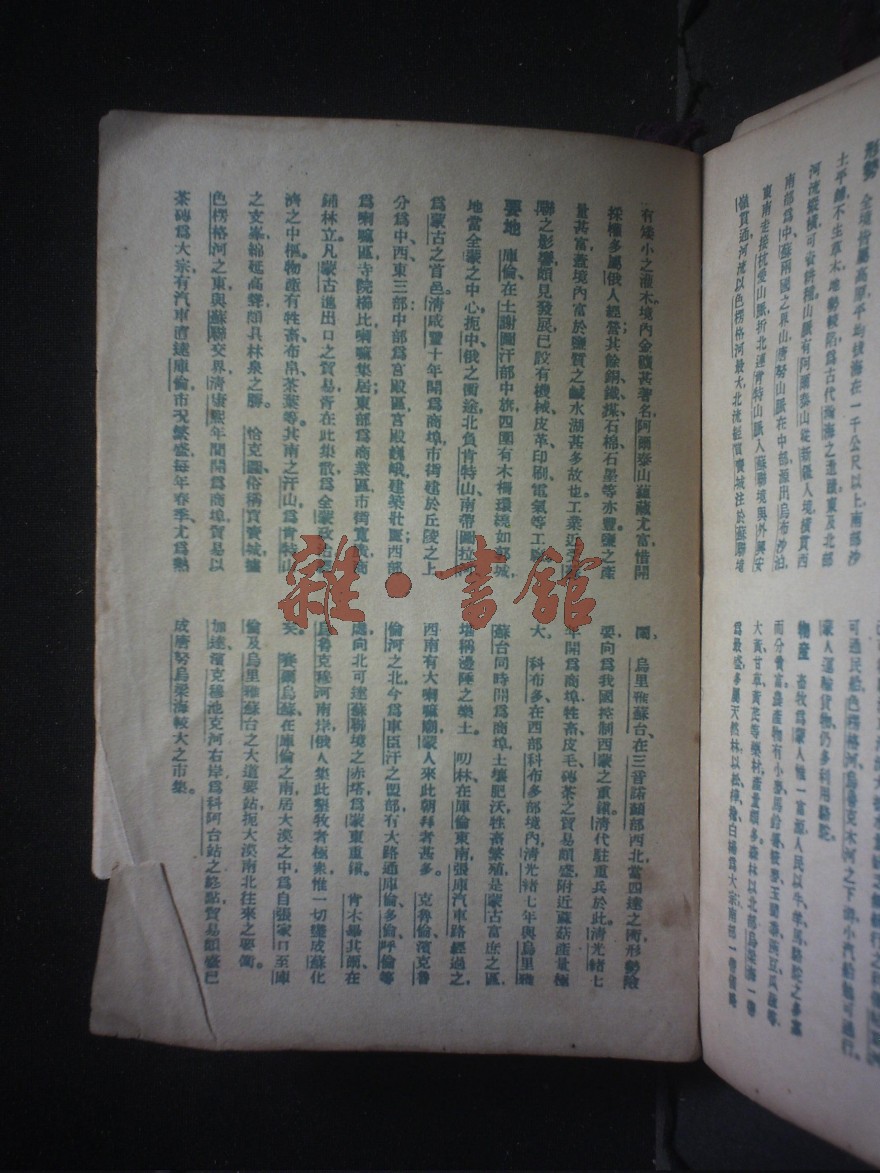 形勢　全境皆屬高原，平均拔海在一千公尺以上，南部沙
土平鋪，不生草木，地勢較陷，爲古代瀚海之遺蹟，東及北部
河流縱橫，可資耕種，山脈有阿爾泰山，從新疆入境，橫貫西
南部，爲中蘇兩國之界山，唐努山脈在中部，源出烏布沙泊，
東南走接杭愛山脈，折北連肯特山脈，入蘇聯境，與外興安
嶺貫通，河流以色楞格河最大，北流經買賣城注於蘇聯境
可通民船，色楞格河、烏魯克木河之下游，小汽船且可通行。
蒙人運輸貨物，仍多利用駱駝。
物產　畜牧爲蒙人惟一富源，人民以牛、羊、馬、駱駝之多寡
而分貧富，農產物有小麥、馬鈴薯、
大黃、甘草、黃芪等藥材，產量頗多，森林以北部烏梁海一帶
爲最盛，多屬天然林，以松、樺、檜、白楊爲大宗，南部一帶
有矮小之灌木，境內金礦甚著名，阿爾泰山蘊藏尤富，惜開
採權多屬俄人經營，其餘銅、鐵、煤、石棉、石墨等亦豐，鹽之產
量甚富，蓋境內富於鹽質之鹹水湖甚多故也，工業近受蘇
聯之影響，頗見發展，已設有機械、皮革、印刷、電氣等工廠。
要地　庫倫在土謝圖汗部中旗，四圍有木柵環境如部城，
地當全蒙之中心，扼中、俄之衝途，北負肯特山，南帶圖拉河，
爲蒙古之首邑，清咸豐十年開爲商埠，市街建於丘陵之上，
分爲中、西、東三部，中部爲宮殿區，宮殿巍峨，建築壯麗，西部
爲喇嘛區，寺院櫛比，喇嘛集居，東部爲商業區，市街寬敞，商
鋪林立，凡蒙古進出口之貿易，胥在此集散，爲全蒙政治經
濟之中樞，物產有牲畜、布帛、茶葉等，其南之汗山，爲肯特山
之支峯，綿延高聳，頗具林泉之勝。　恰克圖，俗稱買賣城，據
色楞格河之東，與蘇聯交界，清康熙年間開爲商埠，貿易以
茶磚爲大宗，有汽車直達庫倫，市況繁盛，每年春季尤爲熱
鬧。　烏里雅蘇台在三音諾顏部西北，當四達之衝，形勢險
要，向爲我國控制西蒙之重鎮，清代駐重兵於此，清光緒七
年開爲商埠，牲畜、皮毛、磚茶之貿易頗盛，附近蘑菇產量極
大。　科布多在西部科布多部境內，清光緒七年與烏里雅
蘇台同時開爲商埠，土壤肥沃，牲畜繁殖，是蒙古富庶之區，
堪稱邊陲之樂土。　叨林在庫倫東南，張庫汽車路經過之，
西南有大喇嘛廟，蒙人來此朝拜者甚多。　克魯倫濱克魯
倫河之北，今爲車臣汗之盟部，有大路通庫倫、多倫、呼倫等
處，向北可達蘇聯境之赤塔，爲蒙東重鎮。　肯木畢其爾在
烏魯克穆河南岸，俄人集此墾牧者極衆，惟一切變成蘇化
矣。　賽爾烏蘇在庫倫之南，居大漠之中，爲自張家口至庫
倫及烏里雅蘇台之大道要站，扼大漠南北往來之要衝。
加達濱克穆池克河右岸，爲科阿台站之終點，貿易頗盛，已
成唐努烏梁海較大之市集。
雜·書館